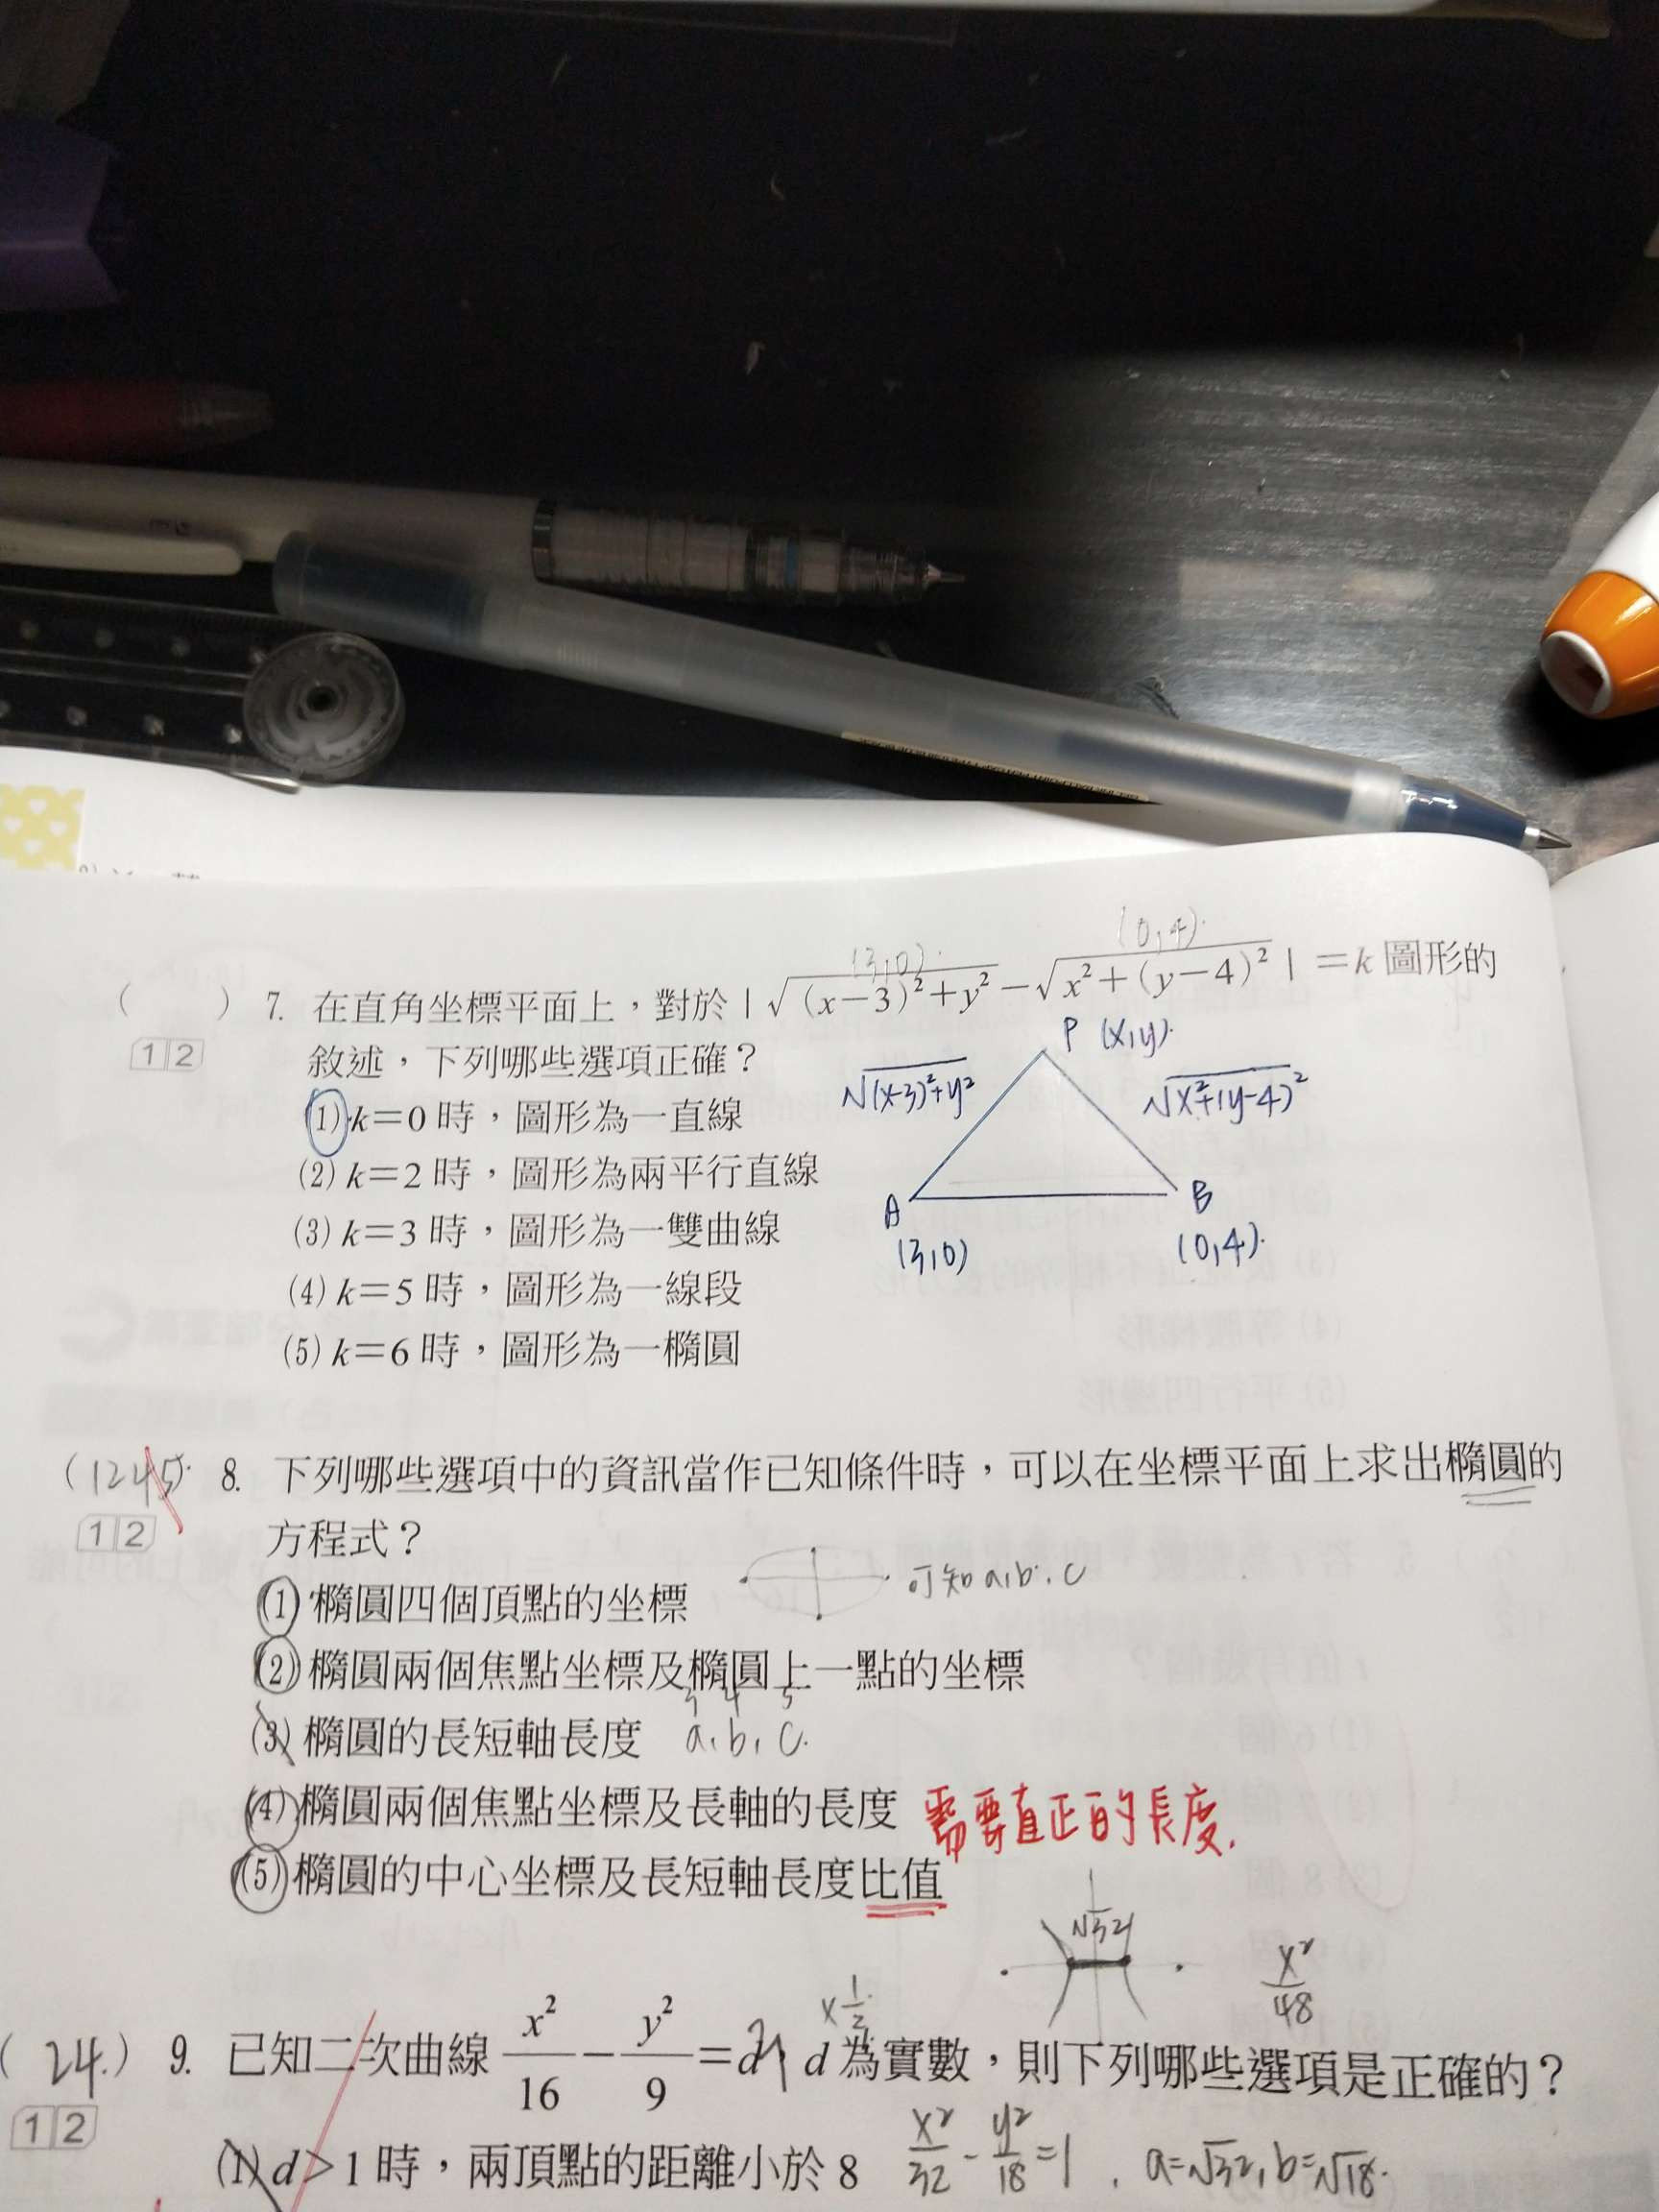 (0,4).
(3,0).
( ) 7. 在直角坐標平面上，對於 | √(x−3)²+y² − √x²+(y−4)² | =k 圖形的
1 2 敘述，下列哪些選項正確？
P (x,y).
√(x-3)²+y² √x²+(y-4)²
(1) k=0 時，圖形為一直線
(2) k=2 時，圖形為兩平行直線
A B
(3) k=3 時，圖形為一雙曲線
(3,0) (0,4).
(4) k=5 時，圖形為一線段
(5) k=6 時，圖形為一橢圓
(1245) 8. 下列哪些選項中的資訊當作已知條件時，可以在坐標平面上求出橢圓的
1 2 方程式？
(1) 橢圓四個頂點的坐標 可知a,b,c
(2) 橢圓兩個焦點坐標及橢圓上一點的坐標
3 4 5
(3) 橢圓的長短軸長度 a, b, c.
(4) 橢圓兩個焦點坐標及長軸的長度 需要真正的長度.
(5) 橢圓的中心坐標及長短軸長度比值
√32
x²/48
×1/2
(24.) 9. 已知二次曲線 x²/16 − y²/9 =d，d 為實數，則下列哪些選項是正確的？
1 2
(1) d>1 時，兩頂點的距離小於 8 x²/32 - y²/18 =1 , a=√32, b=√18.